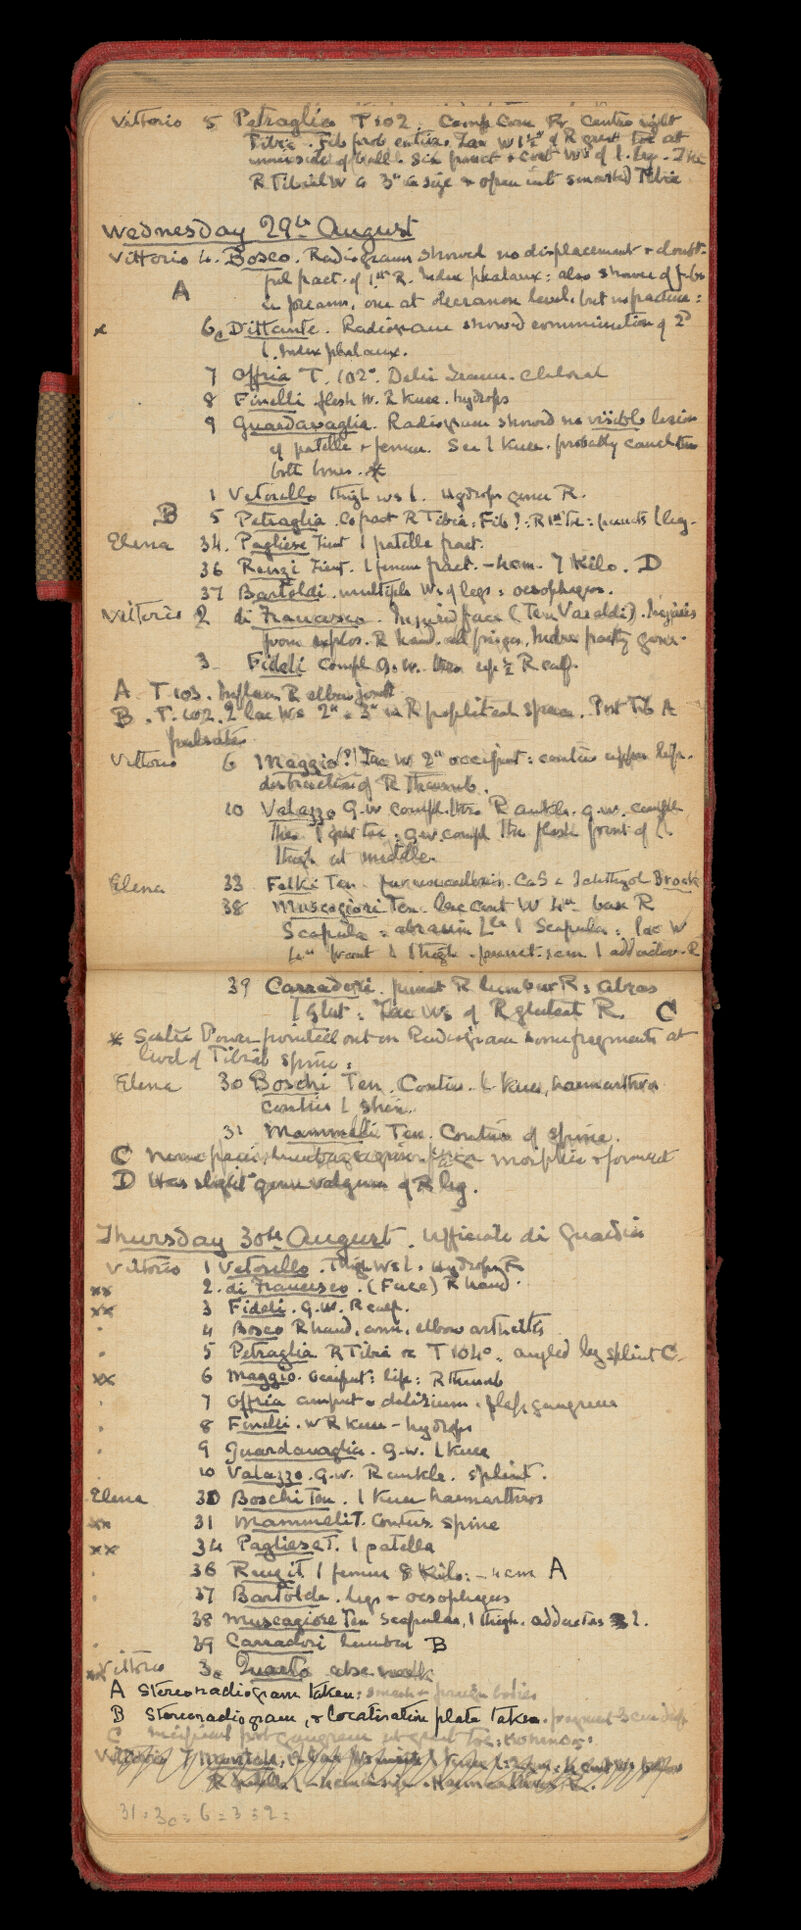 Vittorio 5 Petraglia T 102. Comp Com Fr centre right
Tibia. Fib prob entire. Lac W 1½" of R great toe at
innerside of ball. Six punct & cont Ws of l. leg. The
R Tibial W is 3" in size & open into smashed Tibia
Wednesday 29th August
Vittorio 4. Bosco. Radiogram showed no displacement & doubt-
ful fract. of 1st R. Index phalanx: also shower of f.bs
A
in forearm, one at olecranon level, but no fracture:
x 6c Dittante. Radiogram showed comminution of 2d
l. Index phalanx.
7 Offria T. 102°. Deliri Traum. Chloral
8 Finelli flesh W. R Knee. hydrops
9 Guardavaglia. Radiogram showed no visible lesion
of patella & femur. See l Knee. probably
both bones. *
1 Vetorello thigh ws l. Hydrops genu R.
B 5 Petraglia. Co fract R Tibia: Fib?: R 1st Toe: puncts l leg-
Elena 34. Pagliese Tent l patella fract.
36 Renzi Tent. l femur fract. - 4cm. 7 Kilo. D
37 Bartoldi. multiple Ws of legs: oesophagus.
Vittorio 2 di Francesco. Injured face (Ten Varaldi). Injuries
from explos. R hand. all fingers. Index partly gone.
3 Fideli Compl G.W. thro up. ½ R calf.
A T 103. Inflam R elbow joint
B. T. 102. 2 lac Ws 2" & 3" in R popliteal space. Post Tib A
pulsates
Vittorio 6 Maggio (?) Lac W 2" occiput: contus upper lip.
destruction of R Thumb.
10 Valazzo G.W compl. thro R ankle. g.w. compl
thro l great toe: g.w. compl thro flesh front of l.
thigh at middle.
Elena 33 Felki Ten. furunculosis. CaS & Ichthyol Brook
38 Muscagiori Ten. lac cont W 4" base R
Scapula: abrasion l Scapula: lac W
4" front l thigh. punct. 1cm l adductor. R
39 Carradori. punct R lumbar R: abras
l glut: Lac Ws of R gluteal R. C
* Salie Power pointed out on Radiogram some fragments at
level of Tibial spine:
Elena 30 Boschi Ten. Contus. l Knee, haemarthros
contus l shin.
31 Mammelli Ten. Contus of spine.
C morphia & forment
D Has slight genu valgum of R leg.
Thursday 30th August. Ufficiale di Guardia
Vittorio 1 Vetorello. Thigh Ws l. Hydrops R
xx 2. di Francesco. (Face) R hand.
xx 3 Fideli. G.W. R calf.
. 4 Bosco R hand, arm, elbow arthritis
. 5 Petraglia R Tibia &c T 104°. angled by splint C.
xx 6 Maggio. occiput: lip: R thumb
. 7 Offria amput & delirium. flaps gangrene
. 8 Finelli. W R Knee - hydrops
. 9 Guardavaglia. G.W. l Knee
. 10 Valazzo. G.W. R ankle. splint.
Elena 30 Boschi Ten. l Knee haemarthros
xx 31 Mammelli T. Contus. spine
xx 34 Pagliese T. l patella
. 36 Renzi T. l femur 8 Kilo: - 4cm A
. 37 Bartoldi. legs & oesophagus
. 38 Muscagiore Ten Scapulae, l thigh. adductas 2.
. 39 Carradori lumbar B
xx Vittorio 3c Quarto
A Stereoradiogram taken: smash & foreign bodies
B Stereoradiogram, & localisation plate taken. fragment 3cm deep
C incipient foot gangrene at great toe:
31: 3c: 6: 3: 2: